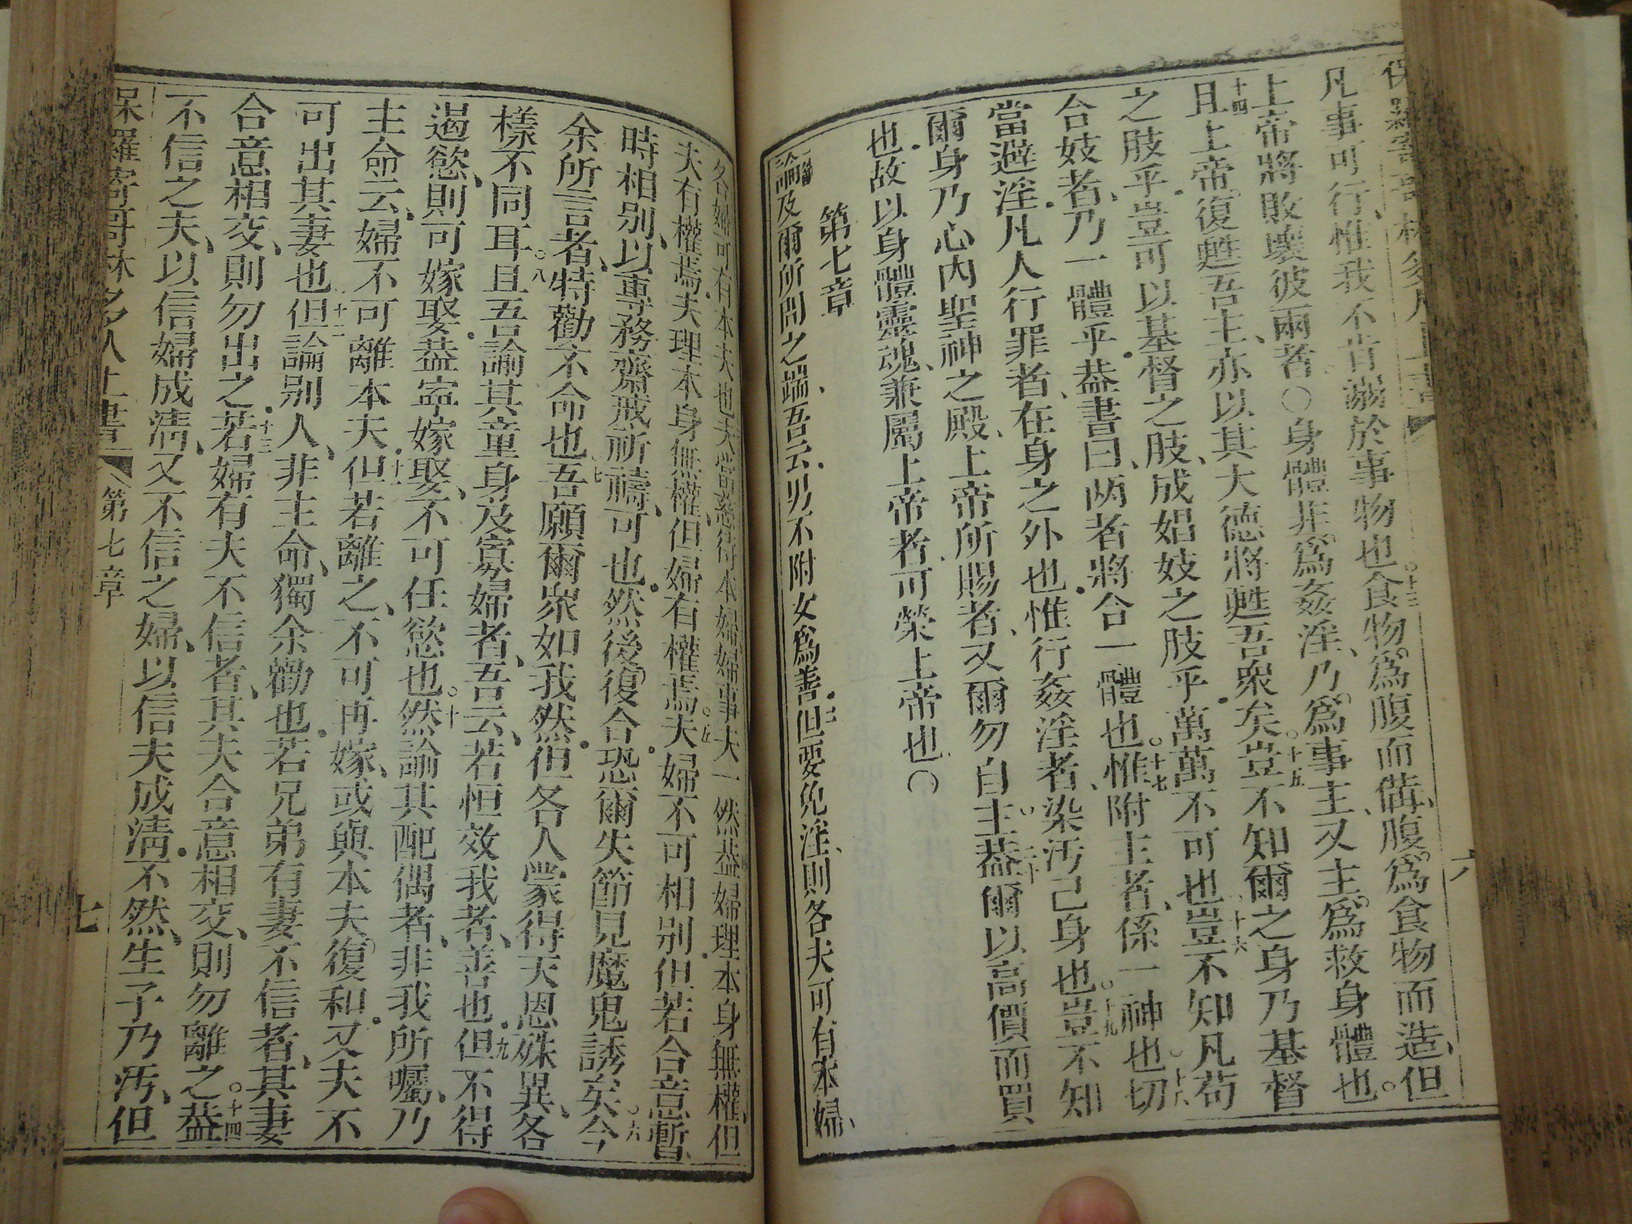 凡事可行、惟我不肯溺於事物也。十三食物爲腹而備、腹爲食物而造、但
上帝將敗壞彼兩者○身體非爲姦淫、乃爲事主、又主爲救身體也。
十四且上帝復甦吾主、亦以其大德將甦吾衆矣。十五豈不知爾之身乃基督
之肢乎、豈可以基督之肢、成娼妓之肢乎、萬萬不可也。十六豈不知凡苟
合妓者、乃一體乎、葢書曰、兩者將合一體也。十七惟附主者、係一神也。十八切
當避淫、凡人行罪者、在身之外也、惟行姦淫者、染汚己身也。十九豈不知
爾身乃心內聖神之殿、上帝所賜者、又爾勿自主。二十葢爾以高價而買
也、故以身體靈魂、兼屬上帝者、可榮上帝也○
第七章
一論及爾所問之端、吾云、男不附女爲善。二但要免淫、則各夫可有本婦、
各婦可有本夫也。夫當慈待本婦、婦事夫一然。葢婦理本身無權、但
夫有權焉、夫理本身無權、但婦有權焉。五夫婦不可相别、但若合意、暫
時相别、以專務齋戒祈禱、可也、然後復合、恐爾失節、見魔鬼誘矣。六今
余所言者、特勸不命也。七吾願爾眾如我然、但各人蒙得天恩殊異、各
樣不同耳。八且吾諭其童身及寡婦者、吾云、若恒效我者、善也。九但不得
遏慾、則可嫁娶、葢寧嫁娶、不可任慾也。十然諭其配偶者、非我所囑、乃
主命云、婦不可離本夫。十一但若離之、不可再嫁、或與本夫復和、又夫不
可出其妻也。十二但論别人、非主命、獨余勸也、若兄弟有妻不信者、其妻
合意相交、則勿出之。十三若婦有夫不信者、其夫合意相交、則勿離之。十四葢
不信之夫、以信婦成清、又不信之婦、以信夫成清、不然、生子乃汚、但
保羅寄哥林多人上書
第七章
七